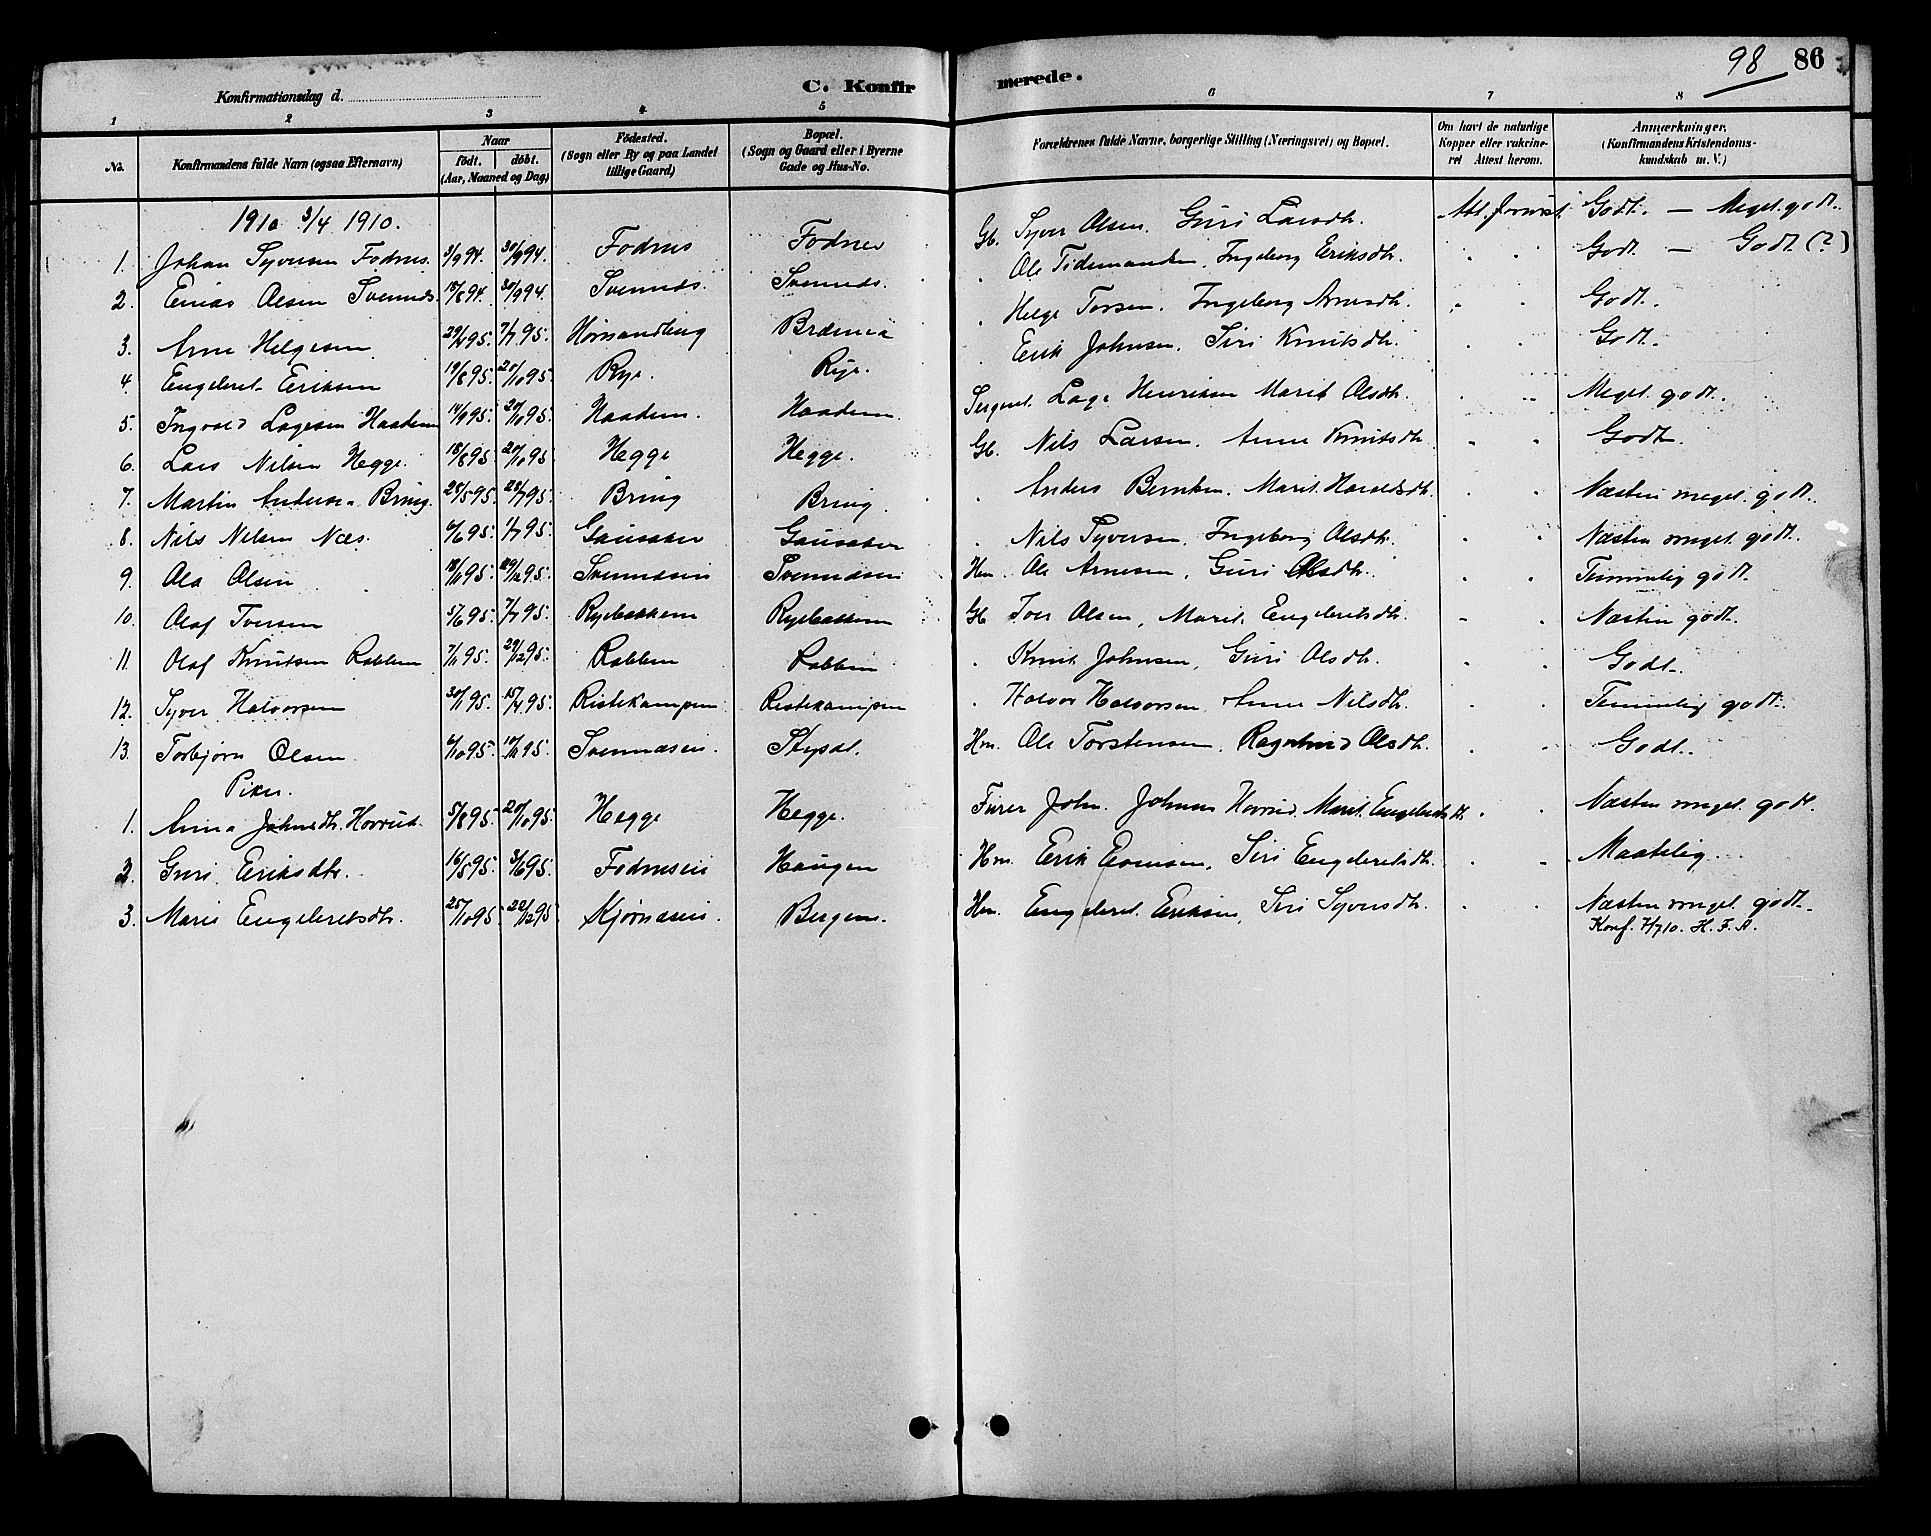 98 86
Konfirmationsdag d. C. Konfirmerede.
1 2 3 4 5 6 7 8
No. Konfirmandens fulde Navn (ogsaa Efternavn) Naar født. døbt. (Aar, Maaned og Dag) Fødested. (Sogn eller By og paa Landet tillige Gaard) Bopæl. (Sogn og Gaard eller i Byerne Gade og Hus-No. Forældrenes fulde Navne, borgerlige Stilling (Næringsvei) og Bopæl. Om havt de naturlige Kopper eller vakcineret Attest herom. Anmærkninger. (Konfirmandens Kristendomskundskab m. V.)
1910 3/4 1910.
1. Johan Syversen Fodnes. 3/9 94. 30/9 94. Fodnes Fodnes Gb. Syver Olsen. Guri Larsdtr. Att. forevist Godt. — Meget godt.
2. Olsen 18/8 94. 30/9 94. Ole Tidemansen. Ingeborg Eriksdtr. Godt — Godt (?)
3. Arne Helgesen 29/4 95. 7/7 95. Helge Torsen. Ingeborg Arnesdtr. Godt.
4. Engebret Eriksen 19/8 95. 20/10 95. Rye. Rye. Erik Johnsen. Siri Knutsdtr. Godt.
5. Ingvald Lagesen Haadem 14/9 95. 20/10 95. Haadem. Haadem Sergeant Lage Henriksen Marit Olsdtr. Meget godt.
6. Lars Nilsen Hegge 18/8 95 20/10 95 Hegge Hegge. Gb. Nils Larsen. Anne Knutsdtr. Godt.
7. Martin Andersen Bring. 28/5 95. 28/7 95. Bring Bring. Anders Berntsen. Marit Haraldsdtr. Næsten meget godt.
8. Nils Nilsen Næs. 6/6 95. 7/7 95. Gausaker Gausaker Nils Syversen. Ingeborg Olsdtr. Næsten meget godt.
9. Ola Olsen 18/11 95. 29/12 95. Svennesen Svennesen Hm. Ole Arnesen, Guri Olsdtr. Temmelig godt.
10. Olaf Iversen 5/6 95. 7/7 95. Ryebakken Ryebakken Gb Iver Olsen, Marit Engebretsdtr. Næsten godt.
11. Olaf Knutsen Robben 7/11 95. 29/12 95. Robben Robben Knut Johnsen, Guri Olsdtr. Godt.
12. Syver Halvorsen 30/1 95. 15/4 95. Ristekampen Ristekampen Halvor Halvorsen Anne Nilsdtr. Temmelig godt.
13. Torbjørn Olsen 6/10 95. 10/11 95. Svennæsen. Hm. Ole Torstensen. Ragnhild Olsdtr. Godt.
Piker.
1. Anna Johnsdtr. Hovrud. 5/8 95. 20/10 95. Hegge Hegge. Furer John Johnsen Hovrud. Marit Engebretsdtr. Næsten meget godt.
2. Guri Eriksdtr. 16/5 95. 3/6 95. Fodnesen Haugen Hm. Erik Evensen, Siri Engebretsdtr. Maatelig.
3. Marie Engebretsdtr. 25/10 95. 22/12 95. Kjørnæsen. Bergen. Hm. Engebret Eriksen, Siri Syversdtr. Næsten meget godt.
Konf. 7/7 10. H. F. A.